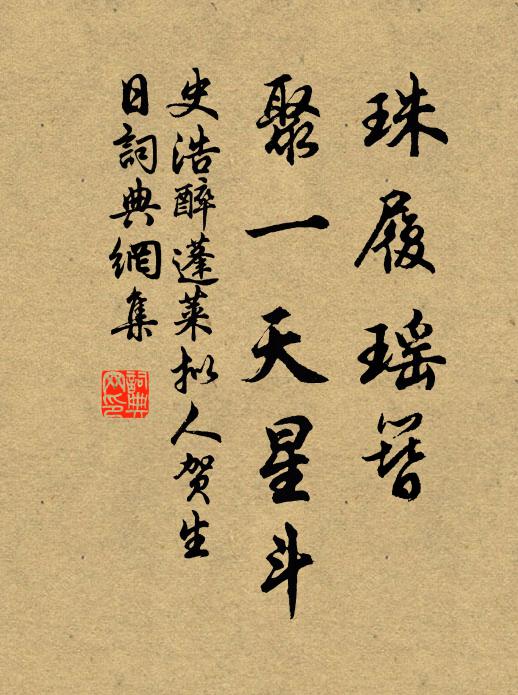 珠履瑶簪
聚一天星斗
史浩醉蓬萊拟人贺生
日詞典網集
詞典
网印